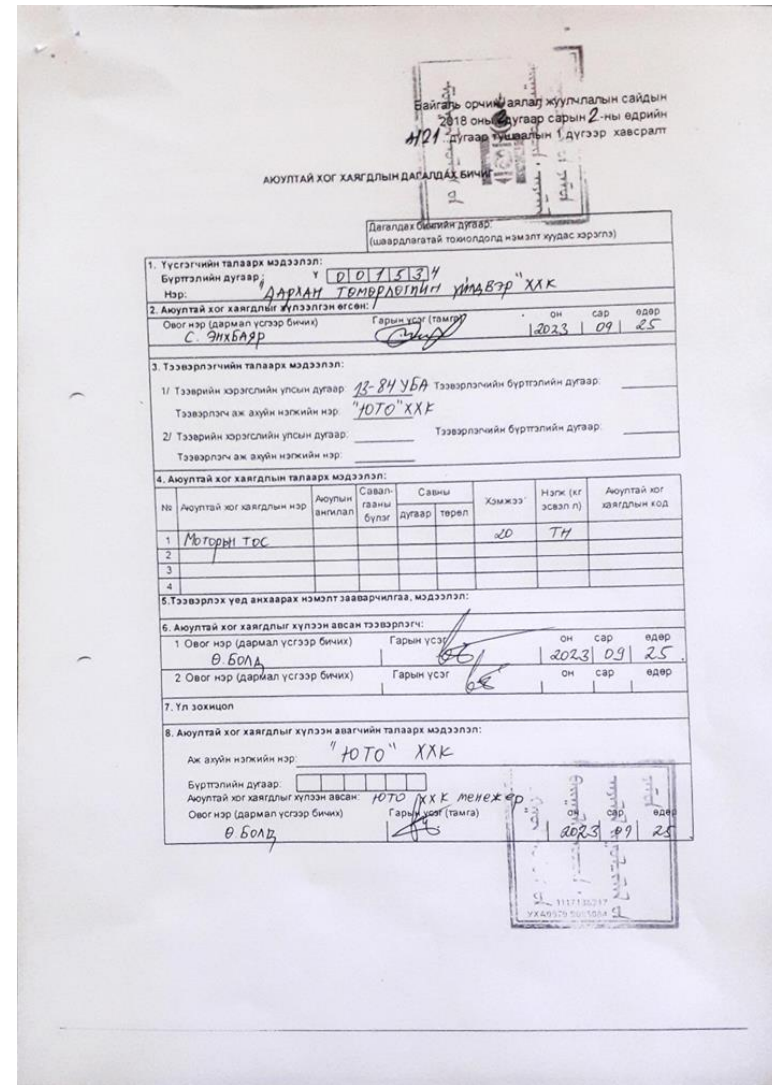 Байгаль орчин, аялал жуулчлалын сайдын
2018 оны 2 дугаар сарын 2-ны өдрийн
А/21 дугаар тушаалын 1 дүгээр хавсралт
АЮУЛТАЙ ХОГ ХАЯГДЛЫН ДАГАЛДАХ БИЧИГ
Дагалдах бичгийн дугаар:
(шаардлагатай тохиолдолд нэмэлт хуудас хэрэглэ)
1. Үүсгэгчийн талаарх мэдээлэл:
Бүртгэлийн дугаар: У 0 0 1 5 3 4
Нэр: "ДАРХАН ТӨМӨРЛӨГИЙН ҮЙЛДВЭР" ХХК
2. Аюултай хог хаягдлыг хүлээлгэн өгсөн:
Овог нэр (дармал үсгээр бичих) Гарын үсэг (тамга) он сар өдөр
С. ЭНХБАЯР 2023 09 25
3. Тээвэрлэгчийн талаарх мэдээлэл:
1/ Тээврийн хэрэгслийн улсын дугаар: 13-84 УБА Тээвэрлэгчийн бүртгэлийн дугаар:
Тээвэрлэгч аж ахуйн нэгжийн нэр: "ЮТО" ХХК
2/ Тээврийн хэрэгслийн улсын дугаар: Тээвэрлэгчийн бүртгэлийн дугаар:
Тээвэрлэгч аж ахуйн нэгжийн нэр:
4. Аюултай хог хаягдлын талаарх мэдээлэл:
№ Аюултай хог хаягдлын нэр Аюулын ангилал Савал-гааны бүлэг Савны дугаар төрөл Хэмжээ Нэгж (кг эсвэл л) Аюултай хог хаягдлын код
1 Моторын тос 20 ТН
2
3
4
5.Тээвэрлэх үед анхаарах нэмэлт зааварчилгаа, мэдээлэл:
6. Аюултай хог хаягдлыг хүлээн авсан тээвэрлэгч:
1 Овог нэр (дармал үсгээр бичих) Гарын үсэг он сар өдөр
Ө. БОЛД 2023 09 25
2 Овог нэр (дармал үсгээр бичих) Гарын үсэг он сар өдөр
7. Үл зохицол
8. Аюултай хог хаягдлыг хүлээн авагчийн талаарх мэдээлэл:
Аж ахуйн нэгжийн нэр: "ЮТО" ХХК
Бүртгэлийн дугаар:
Аюултай хог хаягдлыг хүлээн авсан: ЮТО ХХК менежер
Овог нэр (дармал үсгээр бичих) Гарын үсэг (тамга) он сар өдөр
Ө БОЛД 2023 09 25